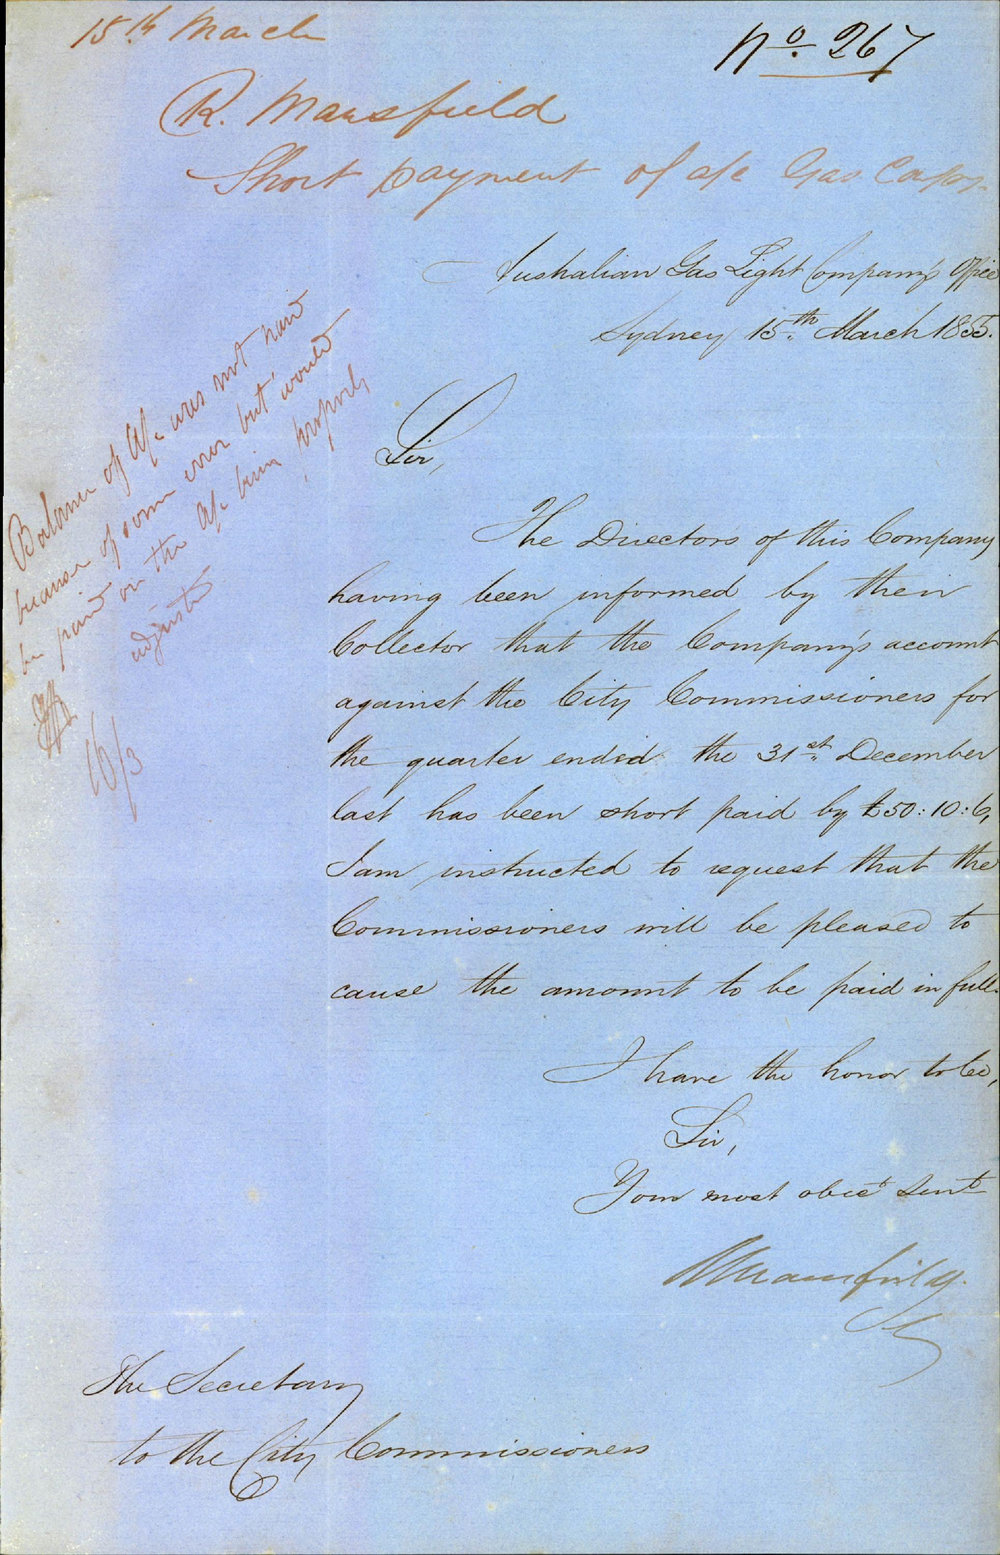 15th March
No. 267
R. Mansfield
Short payment of a/c Gas Compy.
Australian Gas Light Company's Office
Sydney 15th. March 1855.
Sir,
The Directors of this Company
having been informed by their
Collector that the Company's account
against the City Commissioners for
the quarter ended the 31st. December
last has been short paid by £50:10:6,
I am instructed to request that the
Commissioners will be pleased to
cause the amount to be paid in full.
I have the honor to be,
Sir,
Your most obedt Servt
R Mansfield
Sy
The Secretary
to the City Commissioners
Balance of a/c was not paid
because of some error but would
be paid on the a/c being properly
adjusted
16/3